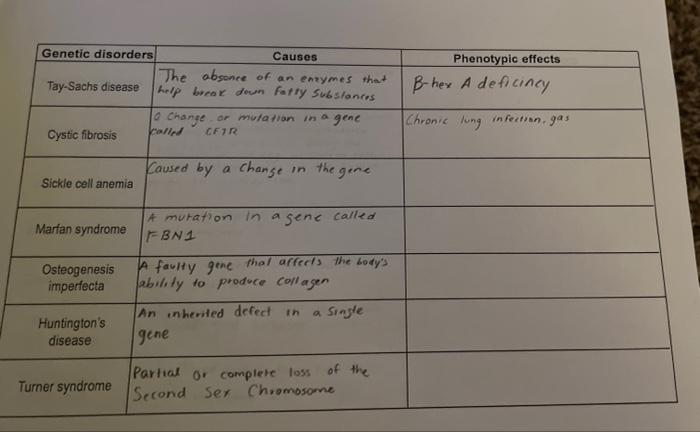 Genetic disorders Causes Phenotypic effects
Tay-Sachs disease
The absence of an enzymes that
help break down fatty substances
B-hex A deficincy
Cystic fibrosis
a change or mutation in a gene
called CFTR
Chronic lung infection, gas
Sickle cell anemia
Caused by a change in the gene
Marfan syndrome
A mutation in a gene called
FBN1
Osteogenesis
imperfecta
A faulty gene that affects the body's
ability to produce collagen
Huntington's
disease
An inherited defect in a single
gene
Turner syndrome
Partial or complete loss of the
Second Sex Chromosome